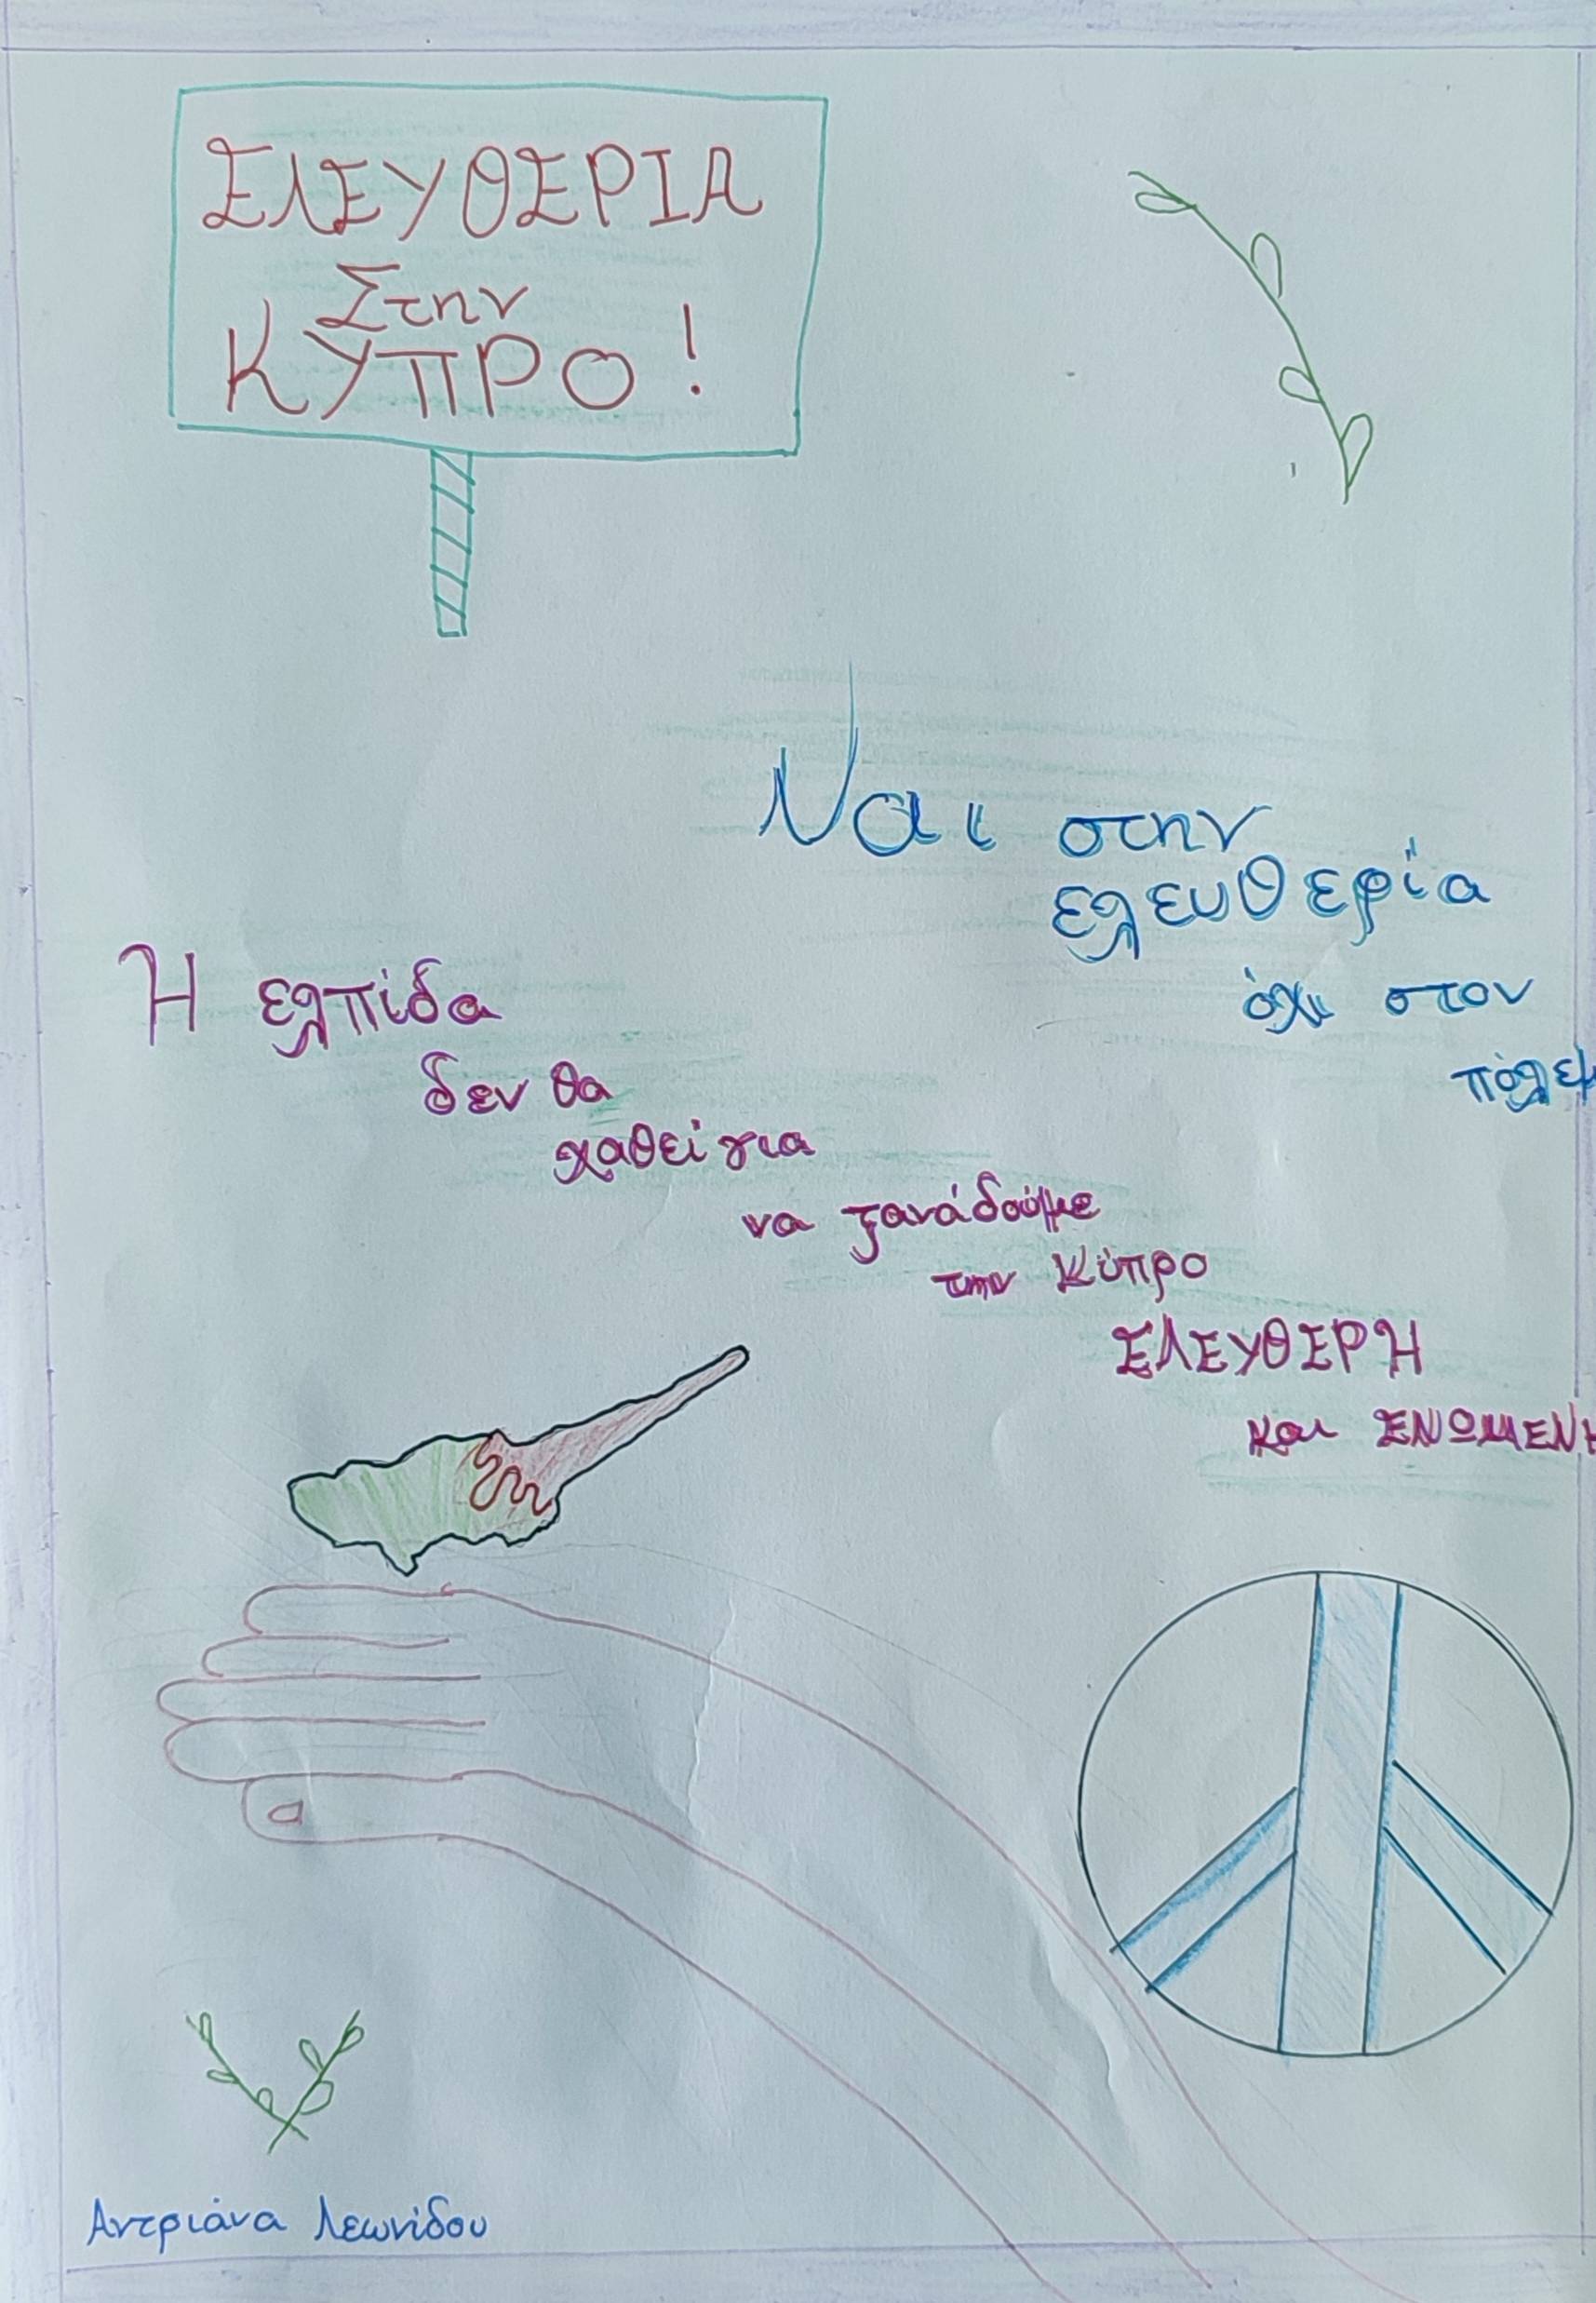 ΕΛΕΥΘΕΡΙΑ
Στην
ΚΥΠΡΟ!
Ναι στην
ελευθερία
όχι στον
πόλεμ
Η ελπίδα
δεν θα
χαθεί για
να ξανάδούμε
την Κύπρο
ΕΛΕΥΘΕΡΗ
και ΕΝΩΜΕΝΗ
Αντριάνα Λεωνίδου